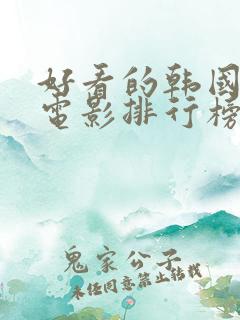 好看的韩国
电影排行榜
鬼家公子
未经同意禁止转载